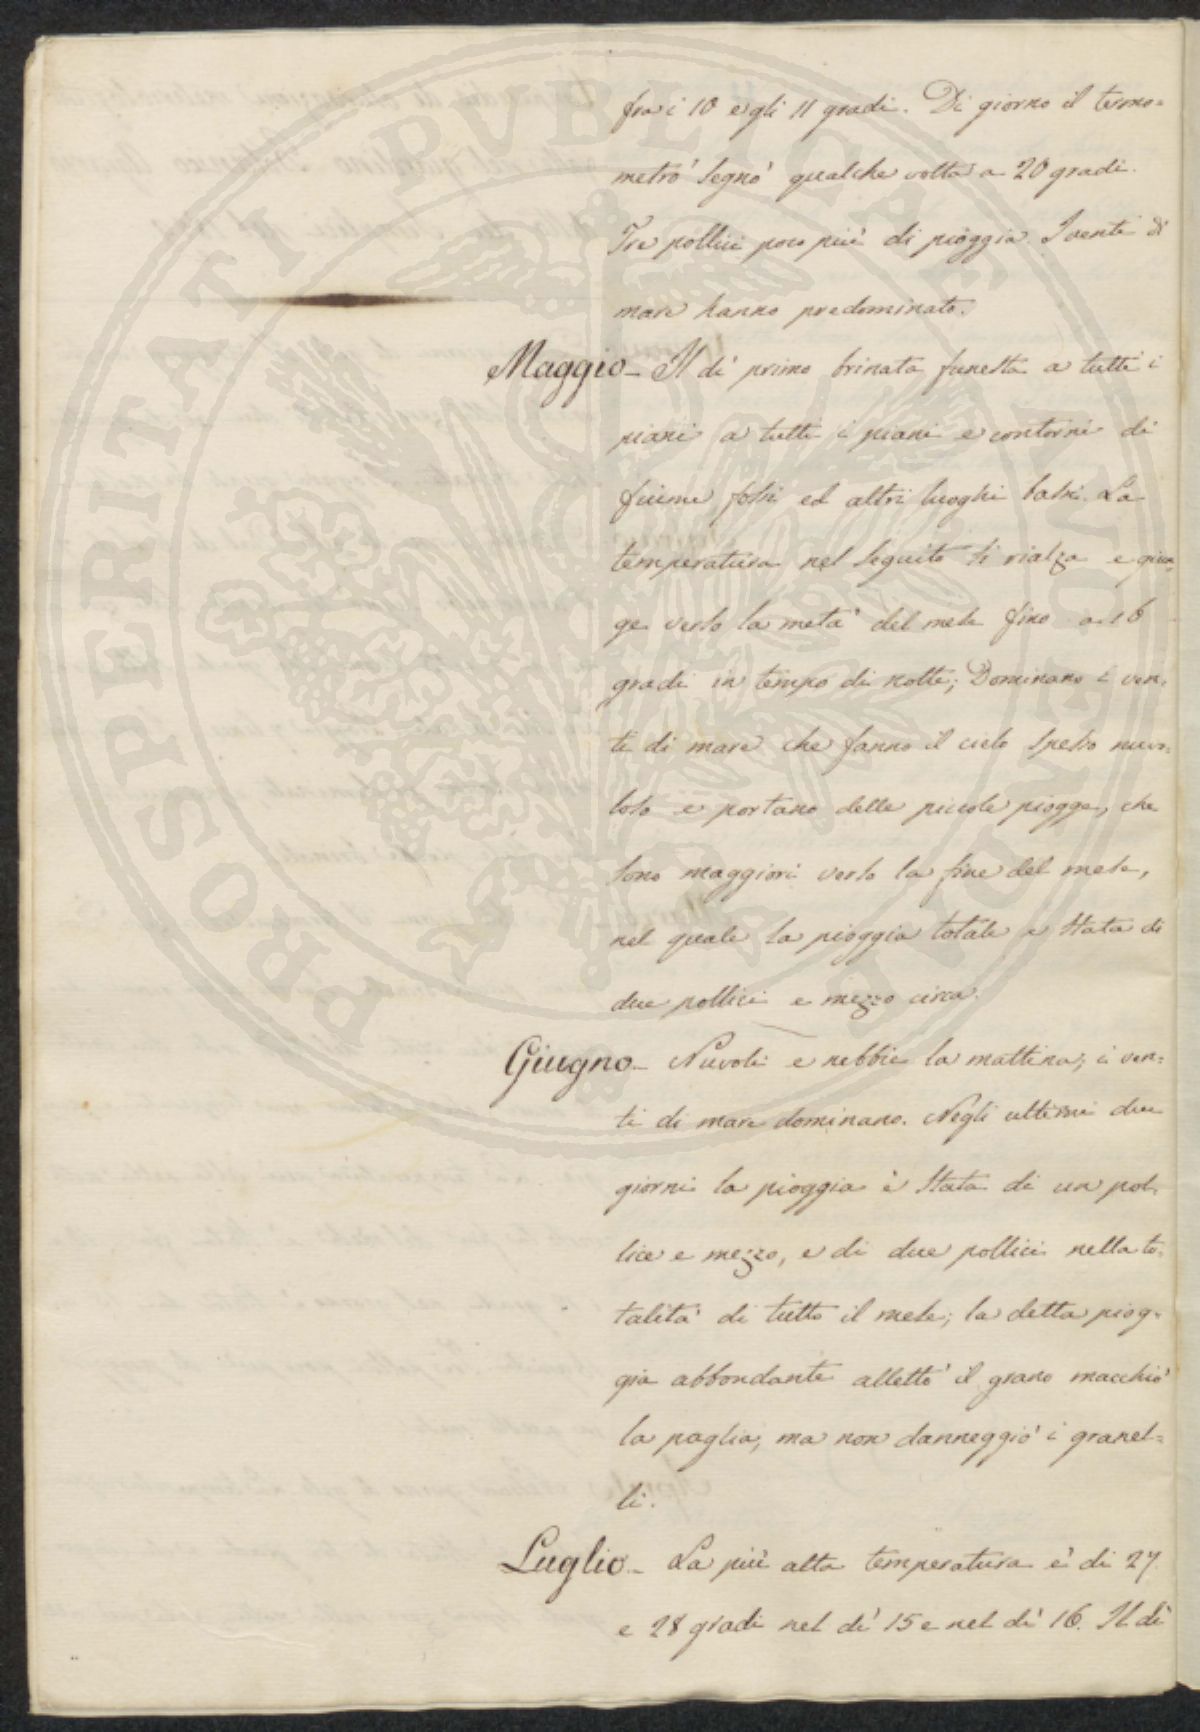 fra i 10 e gli 11 gradi. Di giorno il termo=
metro segnò qualche volta a 20 gradi.
Tre pollici poco più di pioggia. I venti di
mare hanno predominato.
Maggio - Il dì primo brinata funesta a tutti i
piani a tutti i piani e contorni di
fiume fossi ed altri luoghi bassi. La
temperatura nel seguito si rialza e giun=
ge verso la metà del mese fino a 16
gradi in tempo di notte; Dominano i ven=
ti di mare che fanno il cielo spesso nuvo=
loso e portano delle piccole piogge, che
sono maggiori verso la fine del mese,
nel quale la pioggia totale e stata di
due pollici e mezzo circa.
Giugno - Nuvoli e nebbie la mattina; i ven=
ti di mare dominano. Negli ultimi due
giorni la pioggia è stata di un pol=
lice e mezzo, e di due pollici nella to=
talità di tutto il mese; la detta piog=
gia abbondante allettò il grano macchiò
la paglia, ma non danneggiò i granel=
li.
Luglio - La più alta temperatura è di 27
e 28 gradi nel dì 15 e nel dì 16. Il dì
PROSPERITATI PUBLICAE AUGENDAE